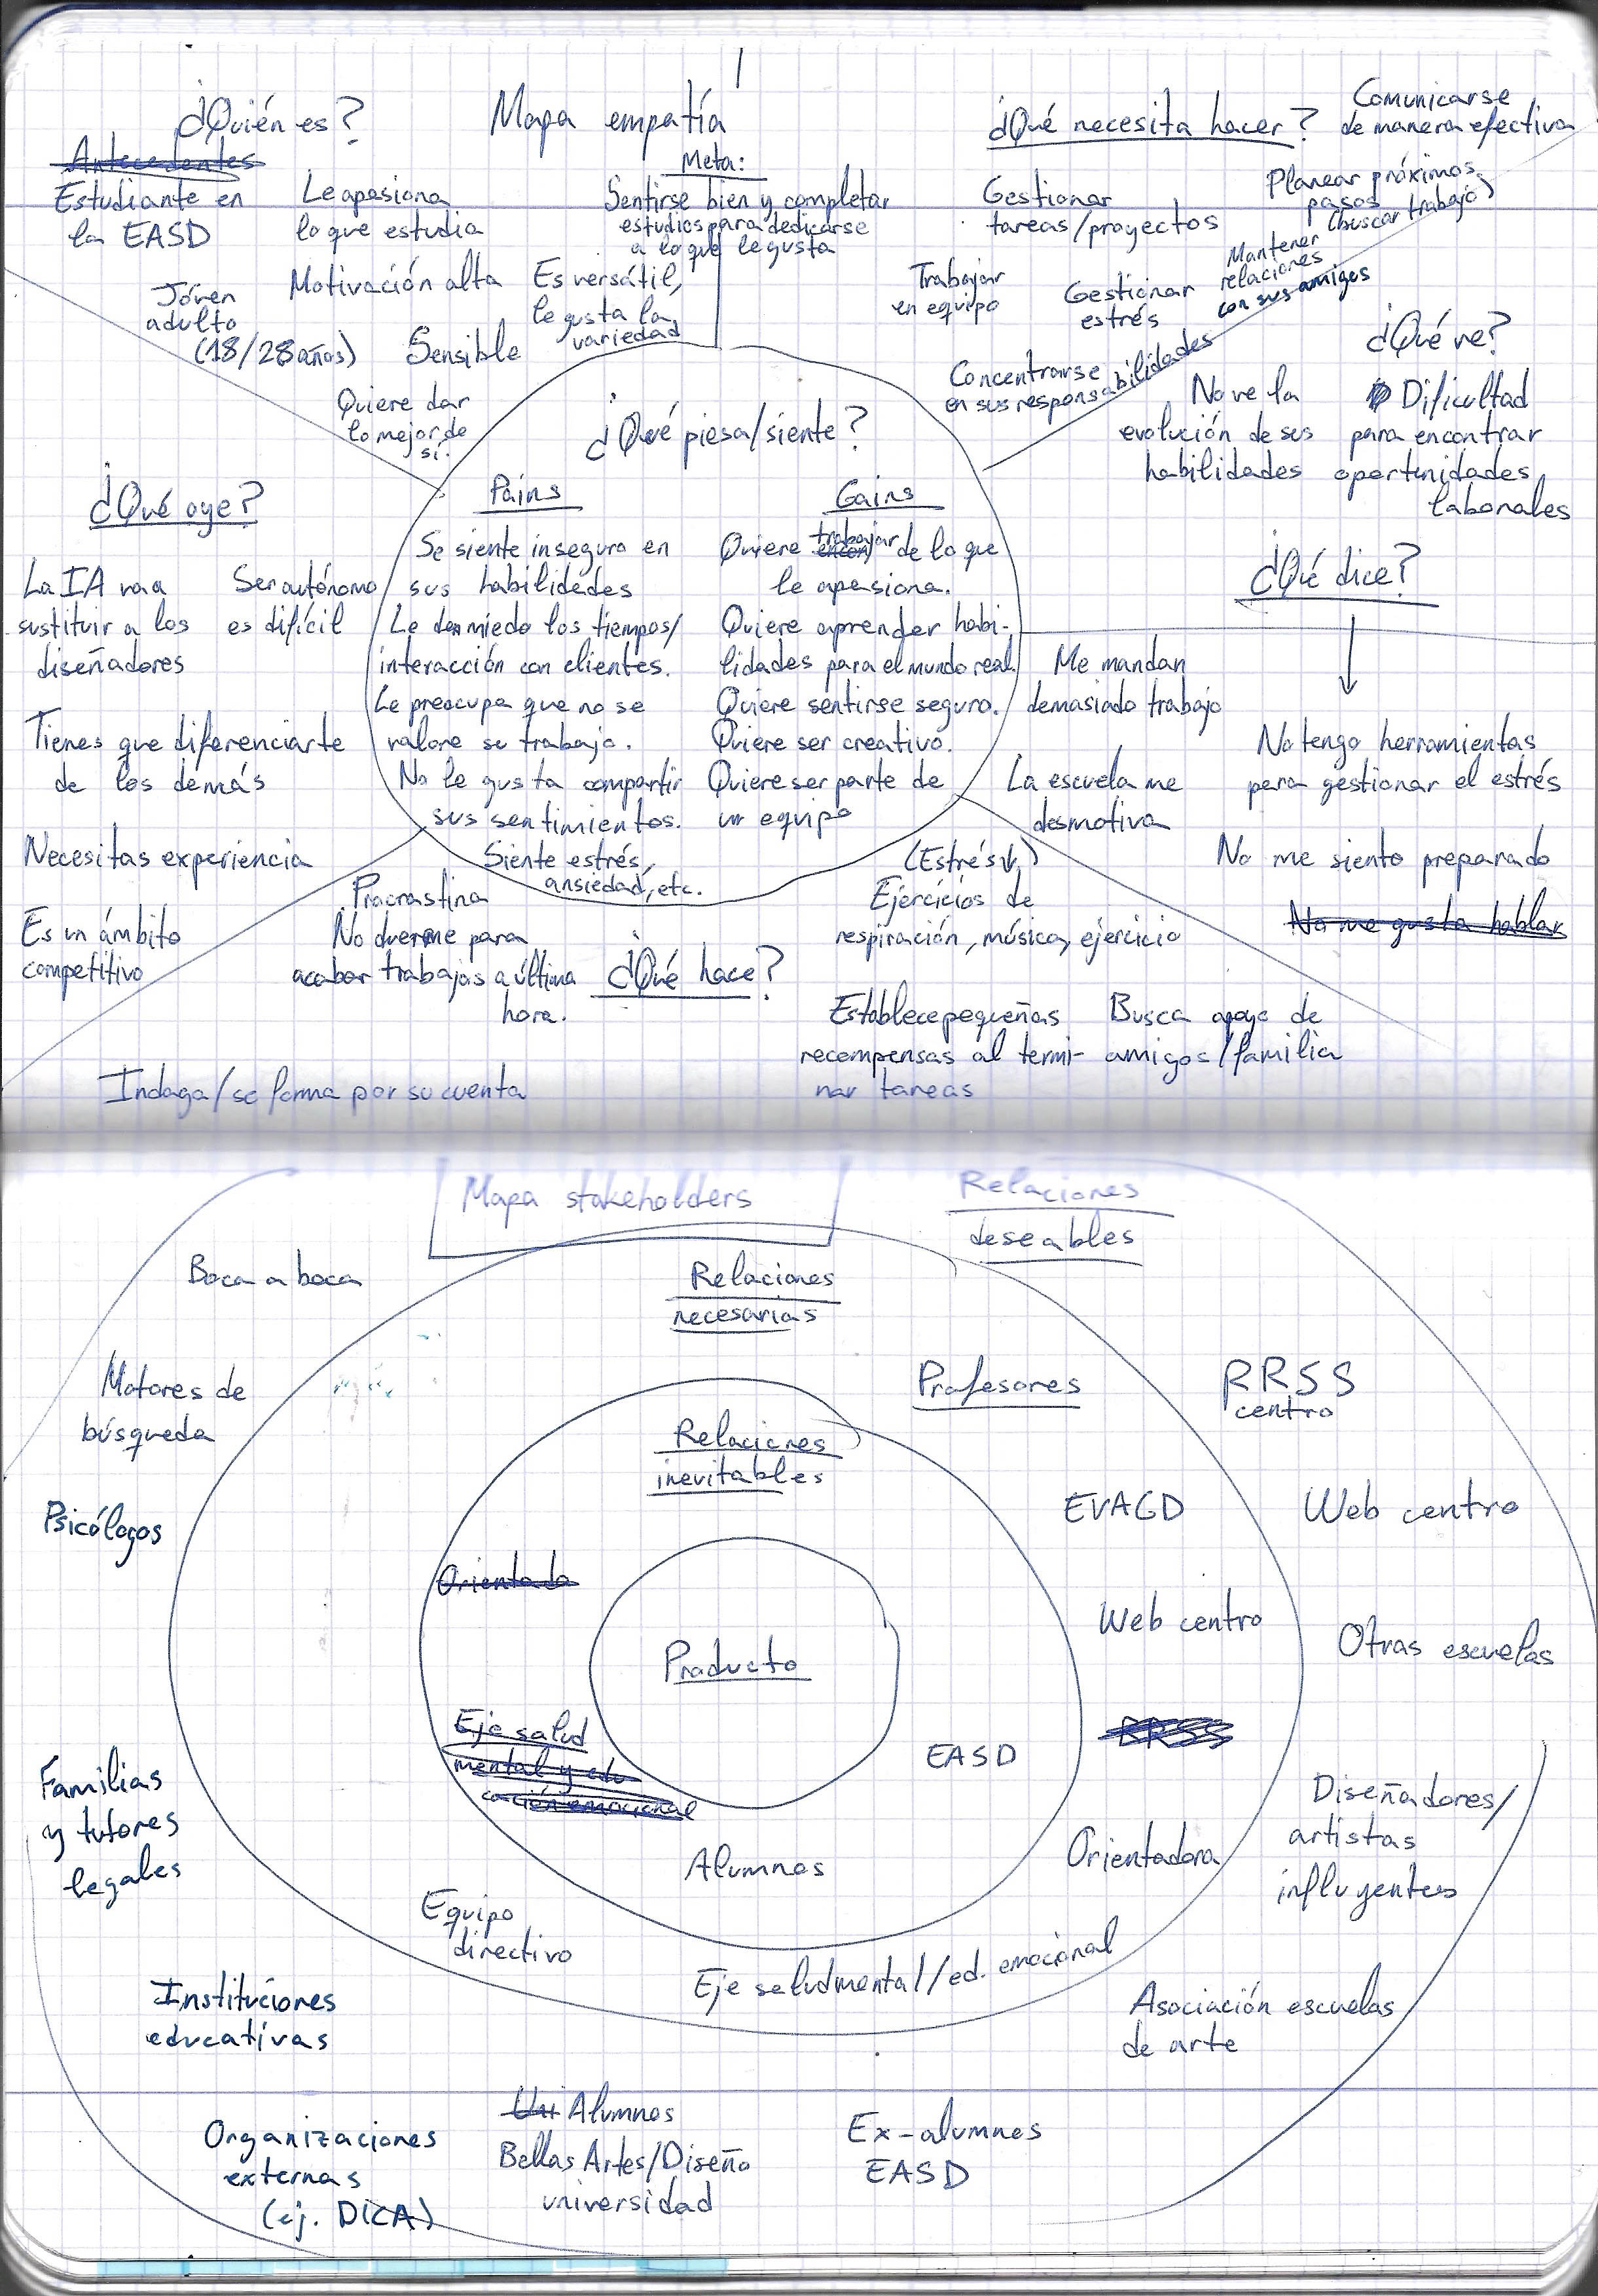 ¿Quién es?
Antecedentes
Estudiante en
la EASD
Le apasiona
lo que estudia
Jóven
adulto
(18/28 años)
Motivación alta
Sensible
Es versátil,
le gusta la
variedad
Quiere dar
lo mejor de
sí.
Mapa empatía
Meta:
Sentirse bien y completar
estudios para dedicarse
a lo que le gusta
¿Qué necesita hacer?
Comunicarse
de manera efectiva
Gestionar
tareas/proyectos
Planear próximos
pasos
(buscar trabajo)
Trabajar
en equipo
Gestionar
estrés
Mantener
relaciones
con sus amigos
Concentrarse
en sus responsabilidades
¿Qué ve?
No ve la
evolución de sus
habilidades
Dificultad
para encontrar
oportunidades
laborales
¿Qué oye?
La IA va a
sustituir a los
diseñadores
Ser autónomo
es difícil
Tienes que diferenciarte
de los demás
Necesitas experiencia
Es un ámbito
competitivo
¿Qué piesa/siente?
Pains
Se siente inseguro en
sus habilidades
Le dan miedo los tiempos/
interacción con clientes.
Le preocupa que no se
valore su trabajo.
No le gusta compartir
sus sentimientos.
Siente estrés,
ansiedad, etc.
Gains
Quiere trabajar de lo que
le apasiona.
Quiere aprender habi-
lidades para el mundo real.
Quiere sentirse seguro.
Quiere ser creativo.
Quiere ser parte de
un equipo
¿Qué dice?
Me mandan
demasiado trabajo
No tengo herramientas
para gestionar el estrés
La escuela me
desmotiva
No me siento preparado
No me gusta hablar
¿Qué hace?
Procrastina
No duerme para
acabar trabajos a última
hora.
Indaga/se forma por su cuenta
(Estrés↓)
Ejercicios de
respiración, música, ejercicio
Establece pequeñas
recompensas al termi-
nar tareas
Busca apoyo de
amigos/familia
Mapa stakeholders
Relaciones
deseables
Boca a boca
Relaciones
necesarias
Motores de
búsqueda
Profesores
RRSS
centro
Relaciones
inevitables
Psicólogos
EVAGD
Web centro
Orientado
Web centro
Producto
Otras escuelas
Eje salud
mental y edu
cación emocional
EASD
RRSS
Familias
y tutores
legales
Diseñadores/
artistas
influyentes
Alumnos
Orientadora
Equipo
directivo
Eje salud mental/ed. emocional
Instituciones
educativas
Asociación escuelas
de arte
Organizaciones
externas
(ej. DICA)
Uni Alumnos
Bellas Artes/Diseño
universidad
Ex-alumnos
EASD